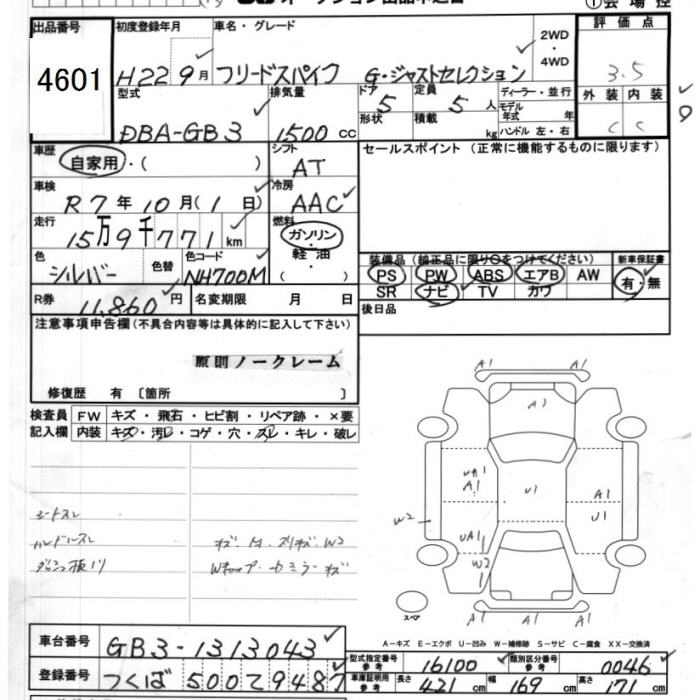 出品番号 初度登録年月 車名・グレード 2WD・4WD 評価点
4601 H22 9月 フリードスパイク G・ジャストセレクション 3.5
型式 排気量 ドア 定員 ディーラー・並行 外装 内装
DBA-GB3 1500cc 5 5人 モデル年式 年 C C
形状 積載 kg ハンドル 左・右
車歴 シフト セールスポイント(正常に機能するものに限ります)
自家用・( ) AT
車検 冷房
R7年10月(1日) AAC
走行 燃料
15万9千771km ガソリン・軽油・( )
色 色替 色コード 装備品(純正品に限り○をつけてください) 新車保証書
シルバー NH700M PS PW ABS エアB AW 有・無
R券 SR ナビ TV カワ
11,860円 名変期限 月 日 後日品
注意事項申告欄(不具合内容等は具体的に記入して下さい)
原則ノークレーム
修復歴 有 〔箇所 〕
検査員 FW キズ・飛石・ヒビ割・リペア跡・×要
記入欄 内装 キズ・汚レ・コゲ・穴・スレ・キレ・破レ
A1 A1
A1
UA1
A1 U1 A1
U1
W2 UA1
W2
シートスレ
ハンドルスレ
スペア
A1 A1 A1
A-キズ E-エクボ U-凹み W-補修跡 S-サビ C-腐食 XX-交換済
車台番号 GB3-1313043
型式指定番号 参考 16100 類別区分番号 参考 0046
登録番号 つくば 500 て 9487
車庫証明用 参考 長さ 421cm 幅 169cm 高さ 171cm